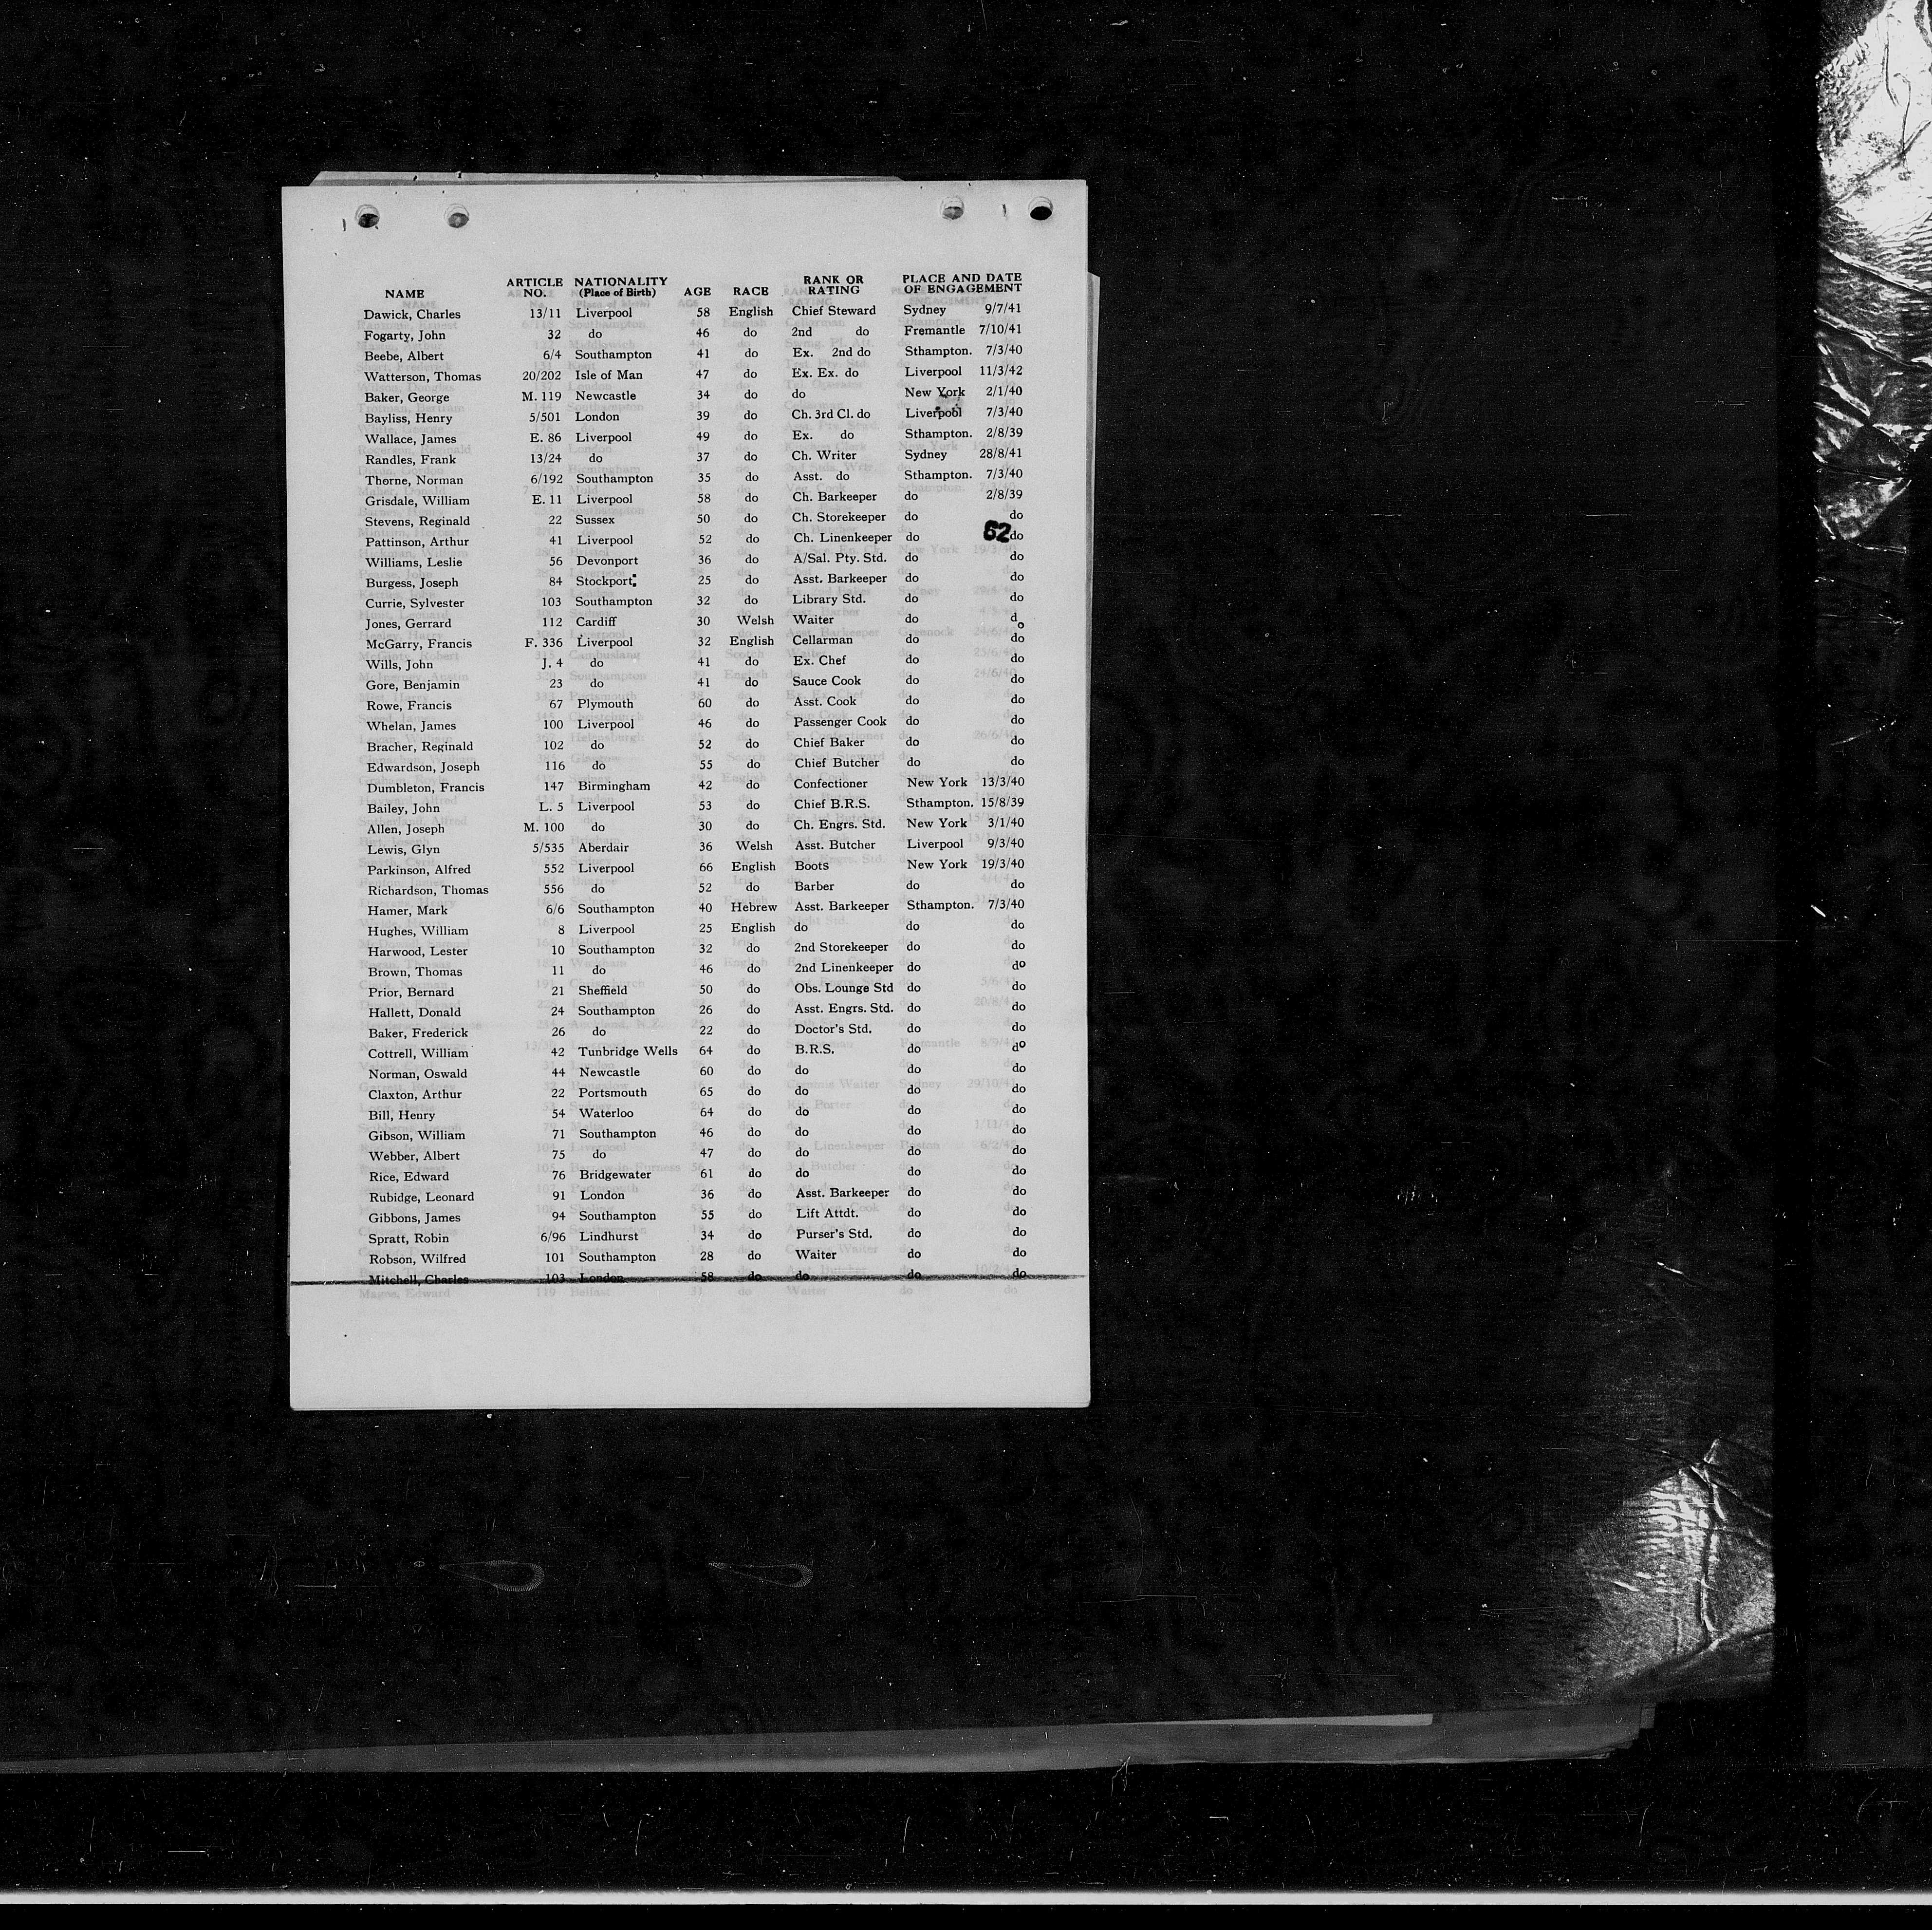 NAME ARTICLE NO. NATIONALITY (Place of Birth) AGE RACE RANK OR RATING PLACE AND DATE OF ENGAGEMENT
Dawick, Charles 13/11 Liverpool 58 English Chief Steward Sydney 9/7/41
Fogarty, John 32 do 46 do 2nd do Fremantle 7/10/41
Beebe, Albert 6/4 Southampton 41 do Ex. 2nd do Sthampton. 7/3/40
Watterson, Thomas 20/202 Isle of Man 47 do Ex. Ex. do Liverpool 11/3/42
Baker, George M. 119 Newcastle 34 do do New York 2/1/40
Bayliss, Henry 5/501 London 39 do Ch. 3rd Cl. do Liverpool 7/3/40
Wallace, James E. 86 Liverpool 49 do Ex. do Sthampton. 2/8/39
Randles, Frank 13/24 do 37 do Ch. Writer Sydney 28/8/41
Thorne, Norman 6/192 Southampton 35 do Asst. do Sthampton. 7/3/40
Grisdale, William E. 11 Liverpool 58 do Ch. Barkeeper do 2/8/39
Stevens, Reginald 22 Sussex 50 do Ch. Storekeeper do do
Pattinson, Arthur 41 Liverpool 52 do Ch. Linenkeeper do 62 do
Williams, Leslie 56 Devonport 36 do A/Sal. Pty. Std. do do
Burgess, Joseph 84 Stockport 25 do Asst. Barkeeper do do
Currie, Sylvester 103 Southampton 32 do Library Std. do do
Jones, Gerrard 112 Cardiff 30 Welsh Waiter do do
McGarry, Francis F. 336 Liverpool 32 English Cellarman do do
Wills, John J. 4 do 41 do Ex. Chef do do
Gore, Benjamin 23 do 41 do Sauce Cook do do
Rowe, Francis 67 Plymouth 60 do Asst. Cook do do
Whelan, James 100 Liverpool 46 do Passenger Cook do do
Bracher, Reginald 102 do 52 do Chief Baker do do
Edwardson, Joseph 116 do 55 do Chief Butcher do do
Dumbleton, Francis 147 Birmingham 42 do Confectioner New York 13/3/40
Bailey, John L. 5 Liverpool 53 do Chief B.R.S. Sthampton. 15/8/39
Allen, Joseph M. 100 do 30 do Ch. Engrs. Std. New York 3/1/40
Lewis, Glyn 5/535 Aberdair 36 Welsh Asst. Butcher Liverpool 9/3/40
Parkinson, Alfred 552 Liverpool 66 English Boots New York 19/3/40
Richardson, Thomas 556 do 52 do Barber do do
Hamer, Mark 6/6 Southampton 40 Hebrew Asst. Barkeeper Sthampton. 7/3/40
Hughes, William 8 Liverpool 25 English do do do
Harwood, Lester 10 Southampton 32 do 2nd Storekeeper do do
Brown, Thomas 11 do 46 do 2nd Linenkeeper do do
Prior, Bernard 21 Sheffield 50 do Obs. Lounge Std do do
Hallett, Donald 24 Southampton 26 do Asst. Engrs. Std. do do
Baker, Frederick 26 do 22 do Doctor's Std. do do
Cottrell, William 42 Tunbridge Wells 64 do B.R.S. do do
Norman, Oswald 44 Newcastle 60 do do do do
Claxton, Arthur 22 Portsmouth 65 do do do do
Bill, Henry 54 Waterloo 64 do do do do
Gibson, William 71 Southampton 46 do do do do
Webber, Albert 75 do 47 do do do do
Rice, Edward 76 Bridgewater 61 do do do do
Rubidge, Leonard 91 London 36 do Asst. Barkeeper do do
Gibbons, James 94 Southampton 55 do Lift Attdt. do do
Spratt, Robin 6/96 Lindhurst 34 do Purser's Std. do do
Robson, Wilfred 101 Southampton 28 do Waiter do do
Mitchell, Charles 103 London 58 do do do do
Magee, Edward 119 Belfast 31 do Waiter do do